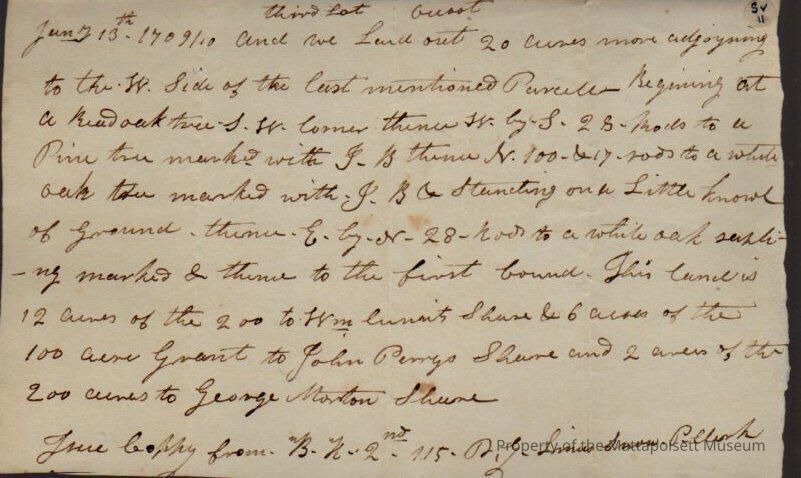 third Lot
Jany 13th 1709/10 and we Laid out 20 acres more adjoyning
to the W. Side of the last mentioned Parcell Begining at
a Readoak tree S. W. corner thence W. by S. 28 Rods to a
Pine tree marked with J. B thence N. 100 & 17 rods to a white
oak tree marked with J. B & Standing on a Little knowl
of Ground thence E. by N 28 Rods to a white oak sapli-
-ng marked & thence to the first bound. This land is
12 acres of the 200 to Wm Share & 6 acres of the
100 acre Grant to John Perrys Share and 2 acres of the
200 acres to George Morton Share
True Coppy from B. N. 2nd 115. P. Clerk
Property of the Mattapoisett Museum